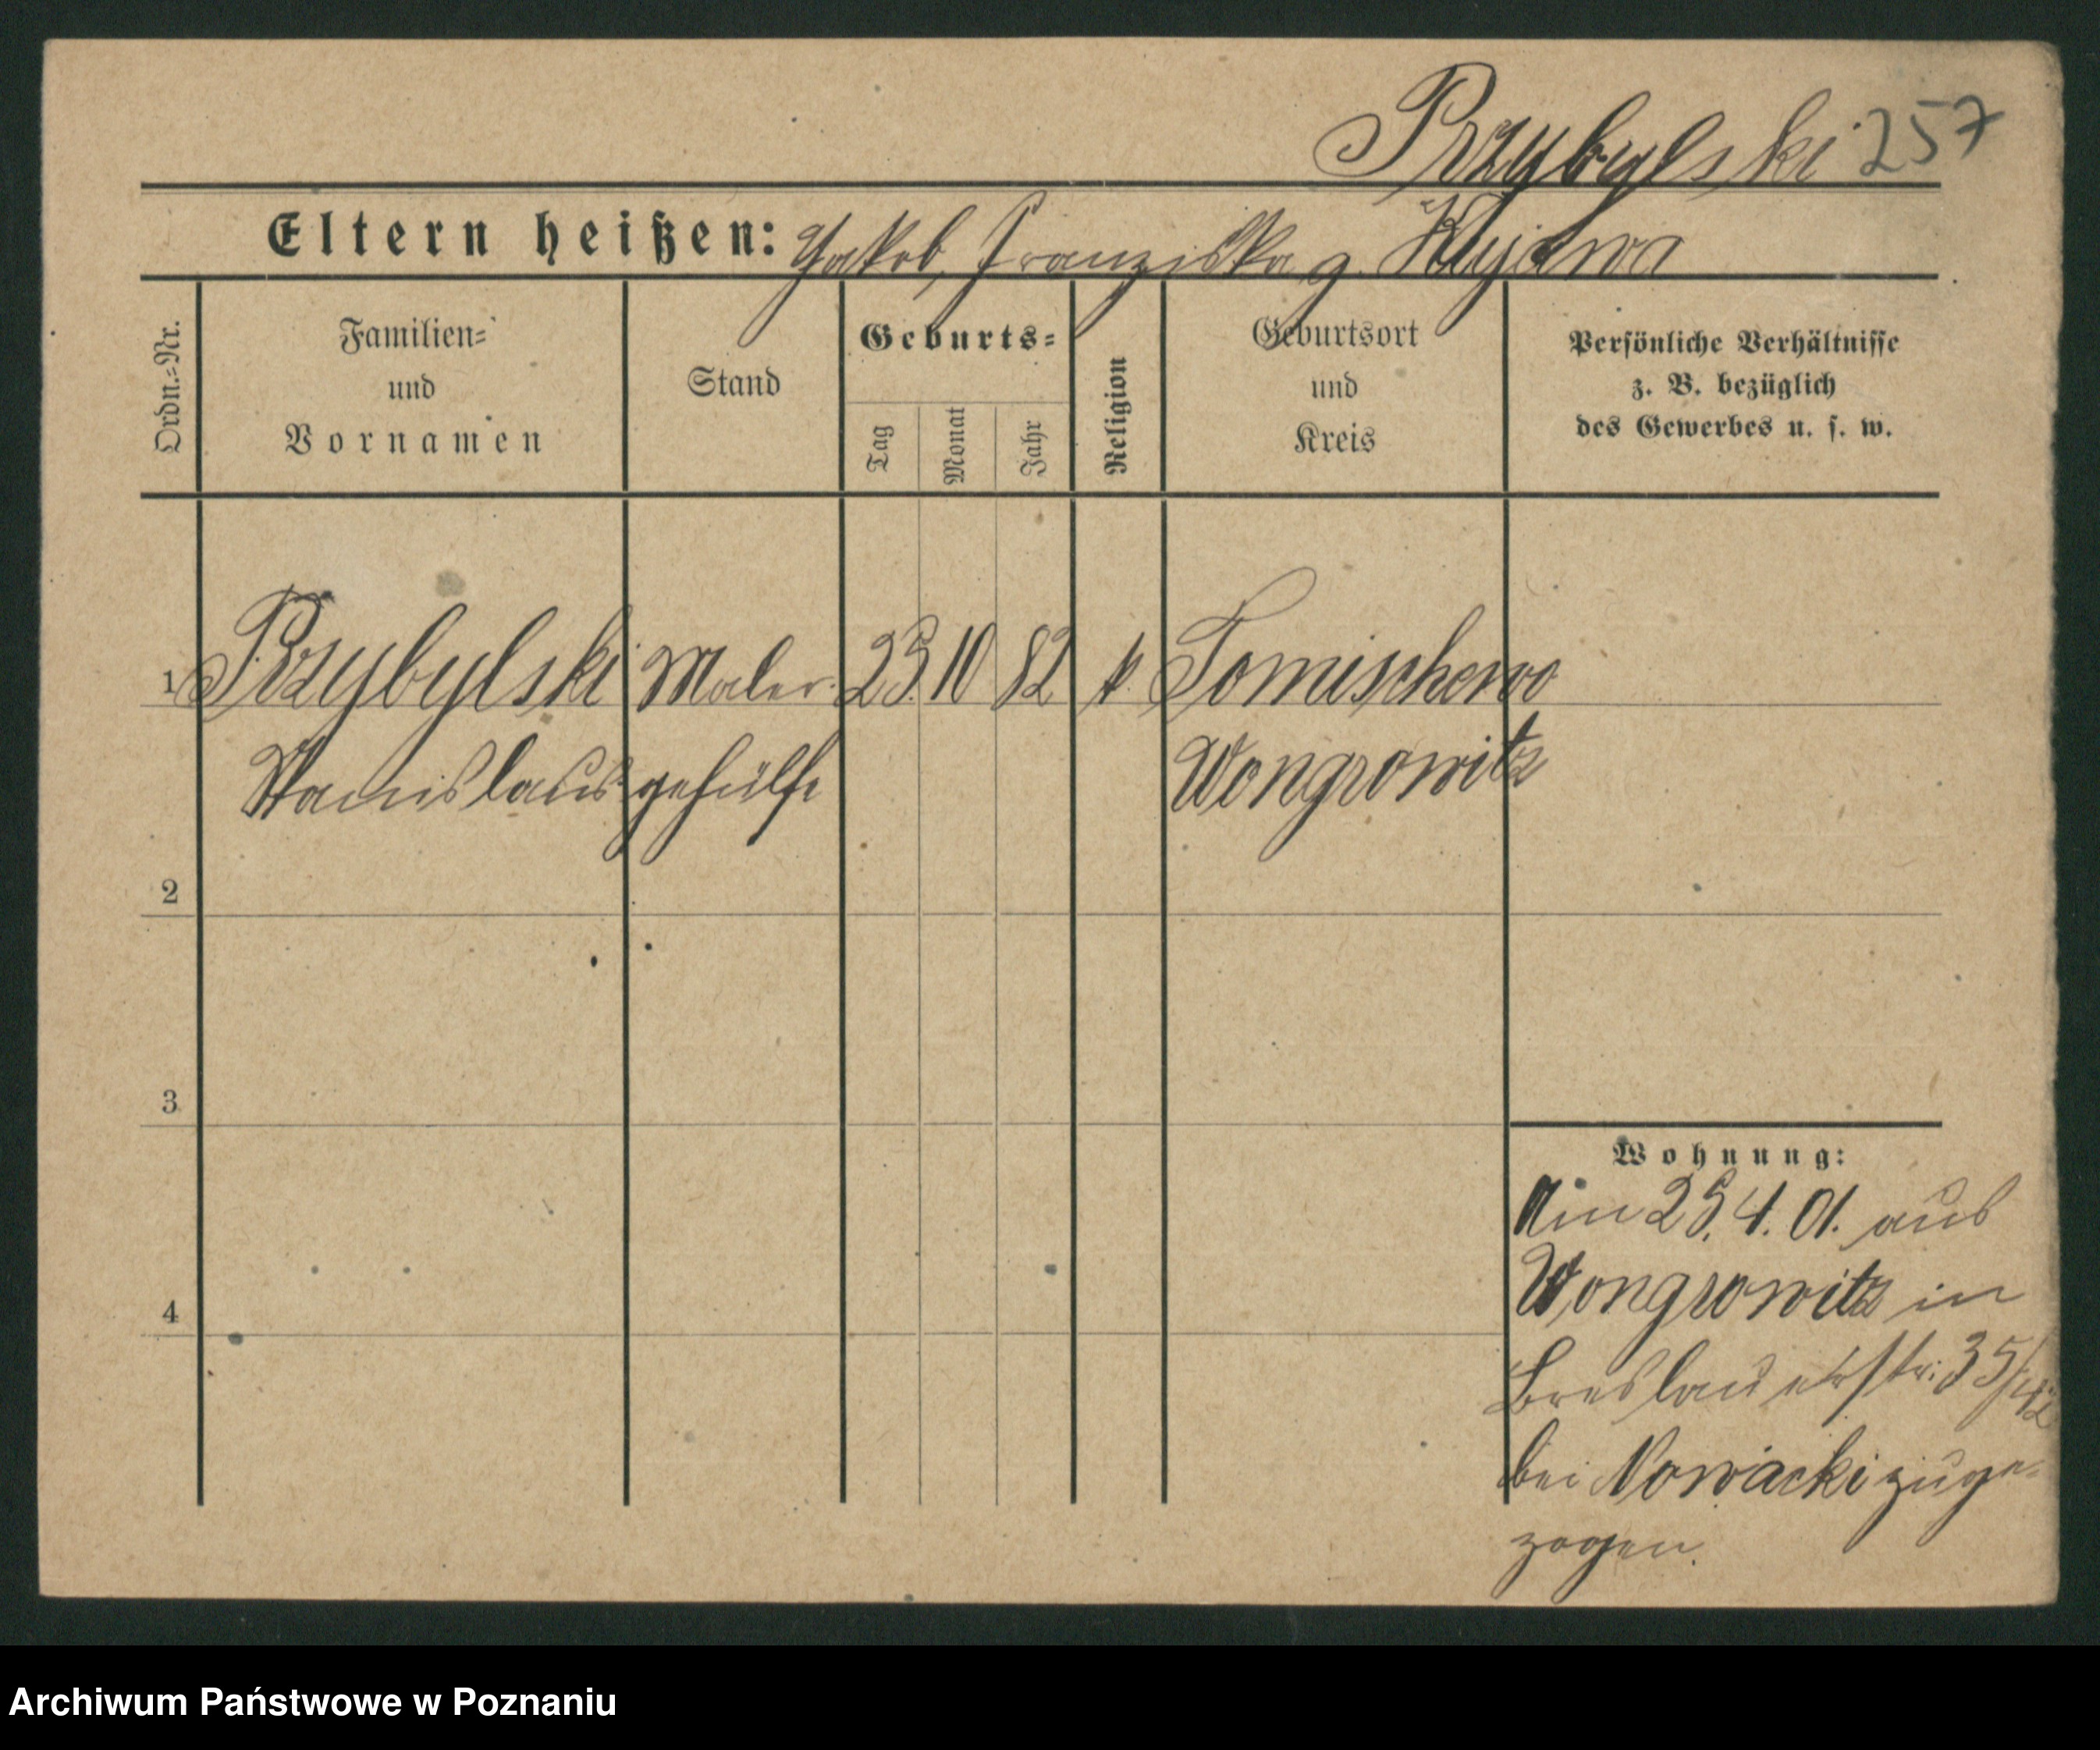 Przybylski 257
Eltern heißen: Jakob, Franziska g. Kujawa
Ordn.-Nr.
Familien-
und
Vornamen
Stand
Geburts-
Tag
Monat
Jahr
Religion
Geburtsort
und
Kreis
Persönliche Verhältnisse
z. B. bezüglich
des Gewerbes u. s. w.
1 Przybylski Maler- 23. 10 82 k. Tomischewo
Stanislaus gehülfe Wongrowitz
2
3
4
Wohnung:
Am 25.4.01. aus
Wongrowitz in
Breslauerstr. 35/
bei Nowacki zuge-
zogen.
Archiwum Państwowe w Poznaniu